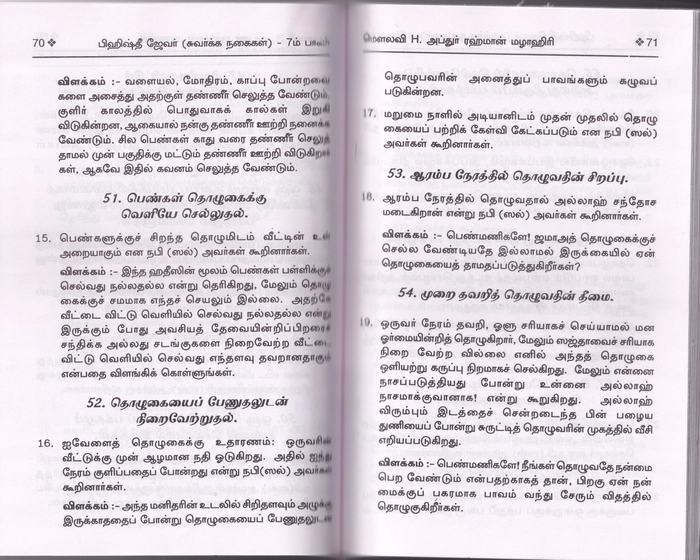 70 ❖ பிஹிஷ்தீ ஜேவர் (சுவர்க்க நகைகள்) - 7ம்
விளக்கம் :- வளையல், மோதிரம், காப்பு போன்றவை
களை அசைத்து அதற்குள் தண்ணீர் செலுத்த வேண்டும்.
குளிர் காலத்தில் பொதுவாகக் கால்கள் இறுகி
விடுகின்றன, ஆகையால் நன்கு தண்ணீர் ஊற்றி நனைக்க
வேண்டும். சில பெண்கள் காது வரை தண்ணீர் செலுத்
தாமல் முன் பகுதிக்கு மட்டும் தண்ணீர் ஊற்றி விடுகிறார்
கள், ஆகவே இதில் கவனம் செலுத்த வேண்டும்.
51. பெண்கள் தொழுகைக்கு
வெளியே செல்லுதல்.
15. பெண்களுக்குச் சிறந்த தொழுமிடம் வீட்டின் உள்
அறையாகும் என நபி (ஸல்) அவர்கள் கூறினார்கள்.
விளக்கம் :- இந்த ஹதீஸின் மூலம் பெண்கள் பள்ளிக்குச்
செல்வது நல்லதல்ல என்று தெரிகிறது, மேலும் தொழு
கைக்குச் சமமாக எந்தச் செயலும் இல்லை. அதற்கே
வீட்டை விட்டு வெளியில் செல்வது நல்லதல்ல என்று
இருக்கும் போது அவசியத் தேவையின்றிப்பிறரைச்
சந்திக்க அல்லது சடங்குகளை நிறைவேற்ற வீட்டை
விட்டு வெளியில் செல்வது எந்தளவு தவறானதாகும்
என்பதை விளங்கிக் கொள்ளுங்கள்.
52. தொழுகையைப் பேணுதலுடன்
நிறைவேற்றுதல்.
16. ஐவேளைத் தொழுகைக்கு உதாரணம்: ஒருவரின்
வீட்டுக்கு முன் ஆழமான நதி ஓடுகிறது. அதில் ஐந்து
நேரம் குளிப்பதைப் போன்றது என்று நபி(ஸல்) அவர்கள்
கூறினார்கள்.
விளக்கம் :- அந்த மனிதரின் உடலில் சிறிதளவும் அழுக்கு
இருக்காததைப் போன்று தொழுகையைப் பேணுதலுடன்
மௌலவி H. அப்துர் ரஹ்மான் மழாஹிரி ❖71
தொழுபவரின் அனைத்துப் பாவங்களும் கழுவப்
படுகின்றன.
17. மறுமை நாளில் அடியானிடம் முதன் முதலில் தொழு
கையைப் பற்றிக் கேள்வி கேட்கப்படும் என நபி (ஸல்)
அவர்கள் கூறினார்கள்.
53. ஆரம்ப நேரத்தில் தொழுவதின் சிறப்பு.
18. ஆரம்ப நேரத்தில் தொழுவதால் அல்லாஹ் சந்தோச
மடைகிறான் என்று நபி (ஸல்) அவர்கள் கூறினார்கள்.
விளக்கம் :- பெண்மணிகளே! ஜமாஅத் தொழுகைக்குச்
செல்ல வேண்டியதே இல்லாமல் இருக்கையில் ஏன்
தொழுகையைத் தாமதப்படுத்துகிறீர்கள்?
54. முறை தவறித் தொழுவதின் தீமை.
19. ஒருவர் நேரம் தவறி, ஒளு சரியாகச் செய்யாமல் மன
ஓர்மையின்றித் தொழுகிறார், மேலும் ஸஜ்தாவைச் சரியாக
நிறை வேற்ற வில்லை எனில் அந்தத் தொழுகை
ஒளியற்று கருப்பு நிறமாகச் செல்கிறது. மேலும் என்னை
நாசப்படுத்தியது போன்று உன்னை அல்லாஹ்
நாசமாக்குவானாக! என்று கூறுகிறது. அல்லாஹ்
விரும்பும் இடத்தைச் சென்றடைந்த பின் பழைய
துணியைப் போன்று சுருட்டித் தொழுவரின் முகத்தில் வீசி
எறியப்படுகிறது.
விளக்கம் :- பெண்மணிகளே! நீங்கள் தொழுவதே நன்மை
பெற வேண்டும் என்பதற்காகத் தான், பிறகு ஏன் நன்
மைக்குப் பகரமாக பாவம் வந்து சேரும் விதத்தில்
தொழுகுகிறீர்கள்.